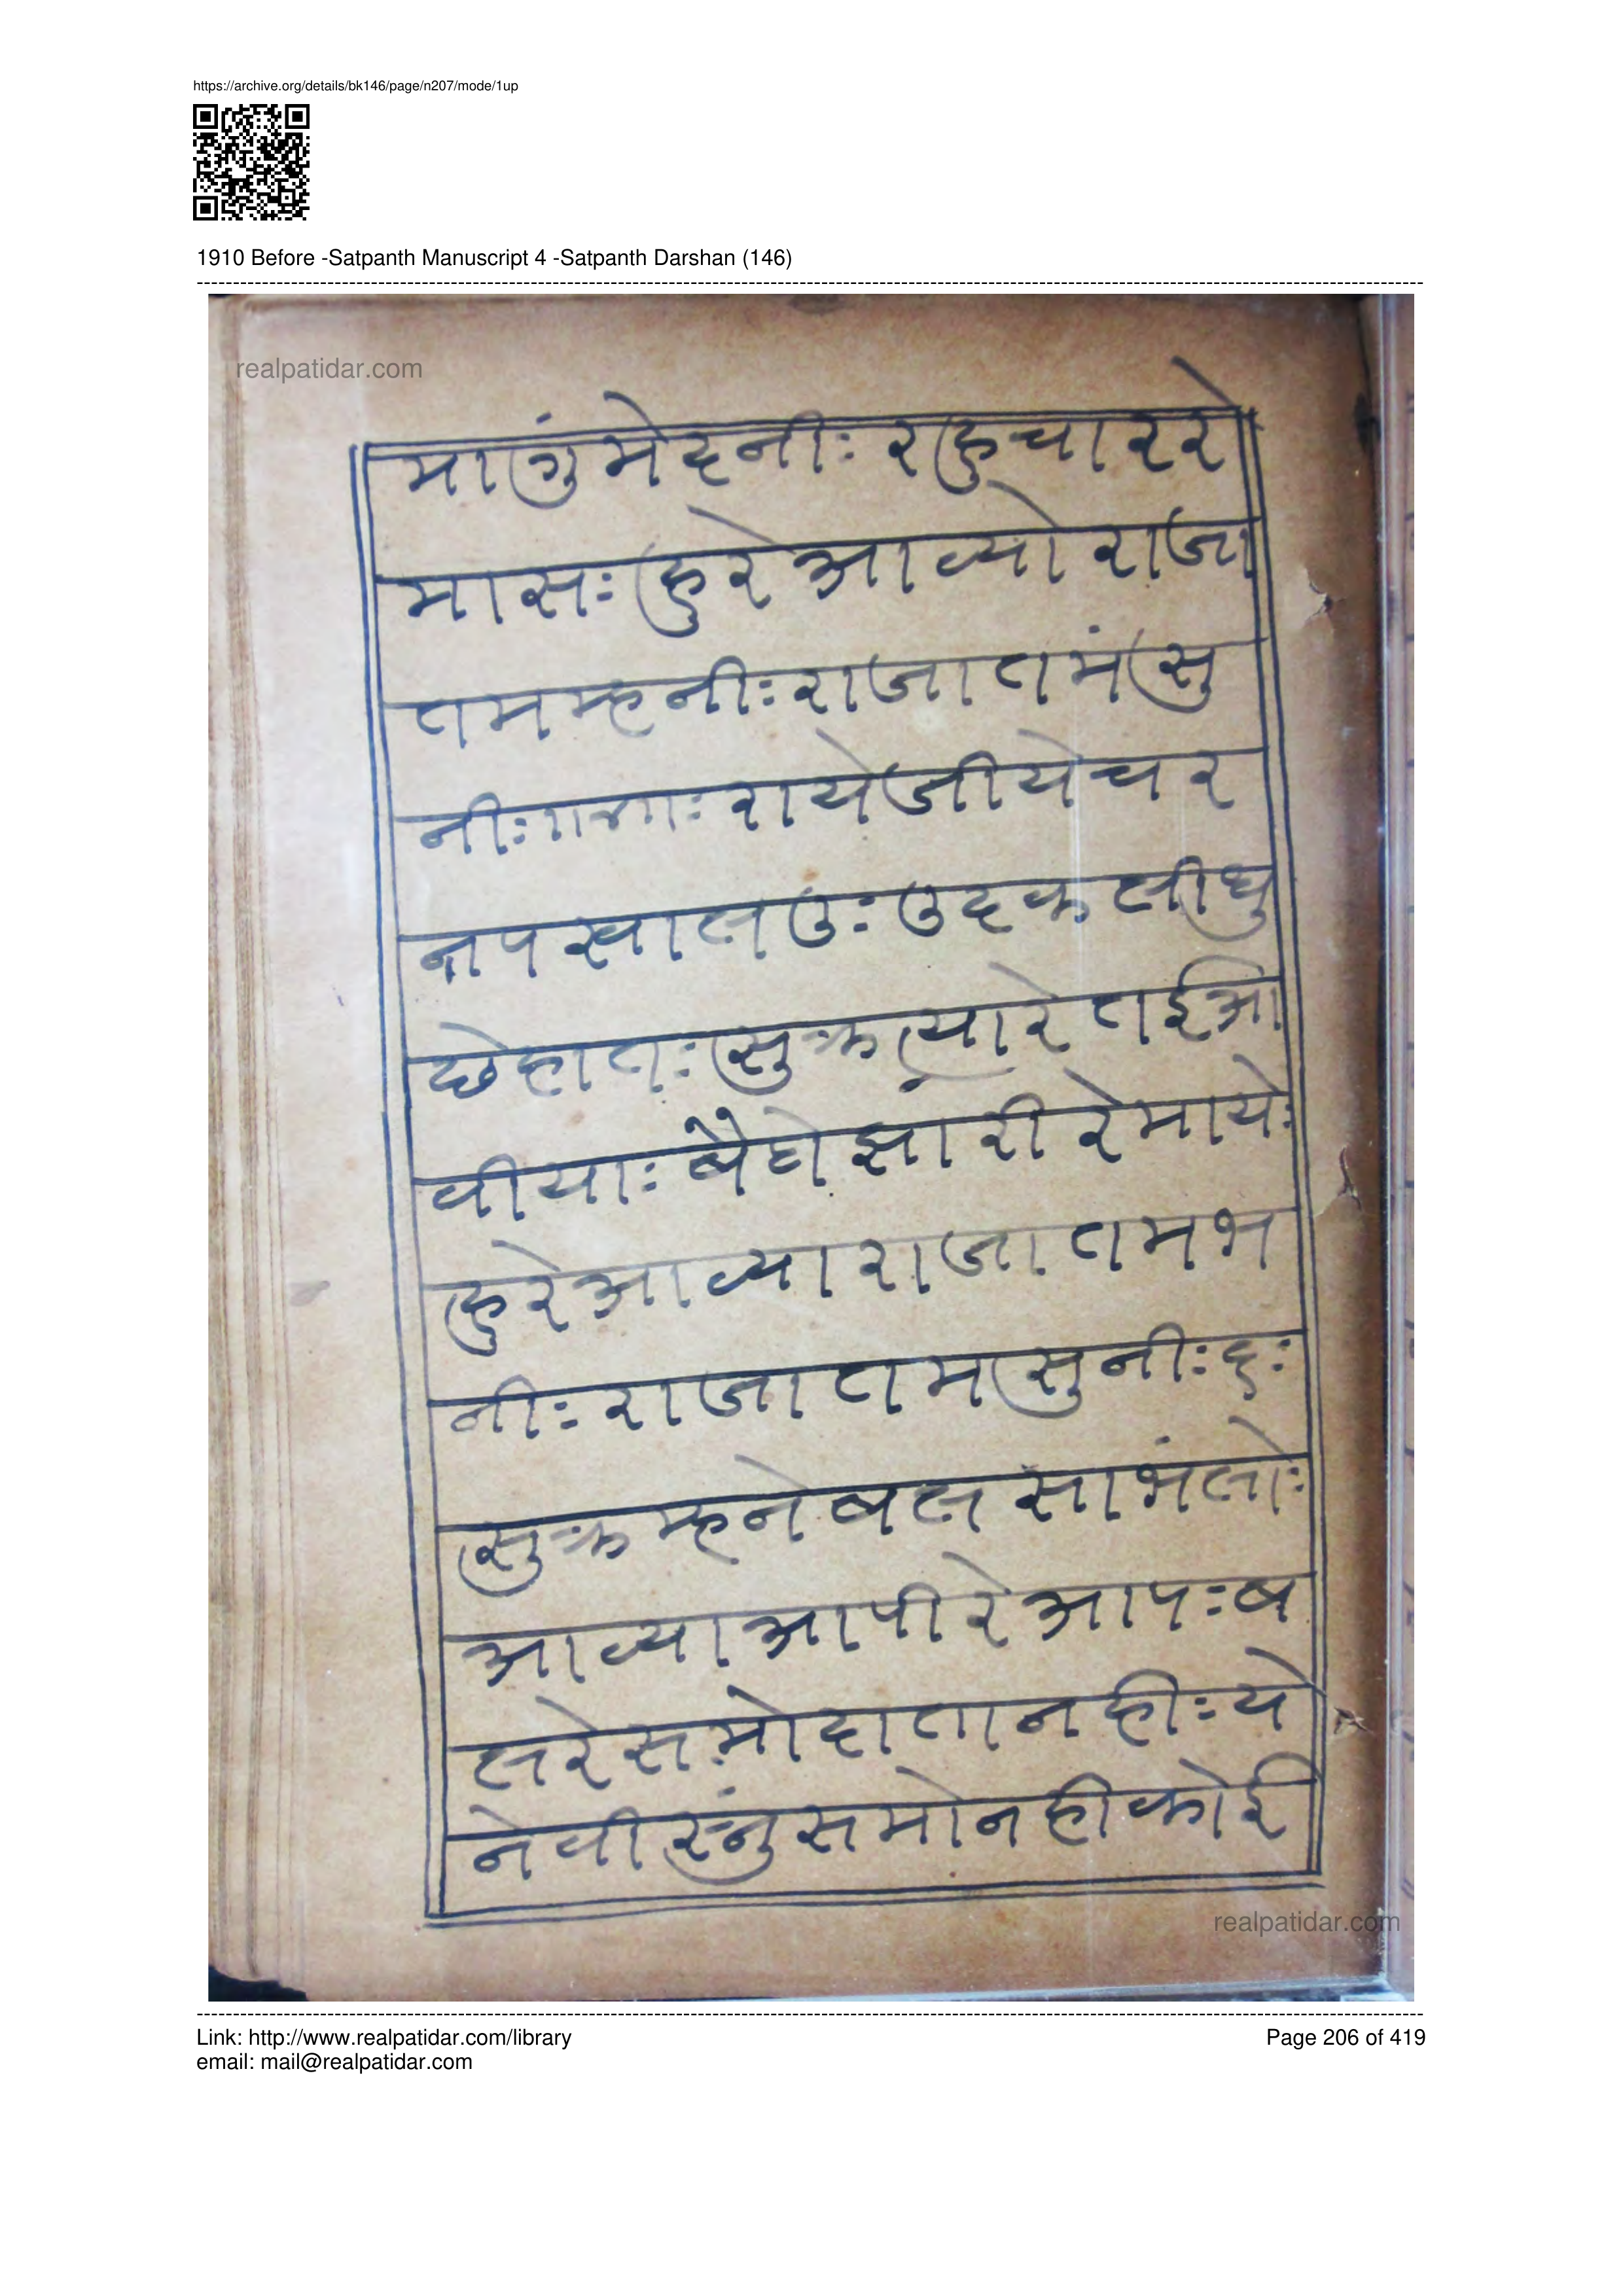 https://archive.org/details/bk146/page/n207/mode/1up
1910 Before -Satpanth Manuscript 4 -Satpanth Darshan (146)
realpatidar.com
मागुं मेदनीः रहु चार रे
मासः हु रे आव्यो राजा
तम म्हनीः राजा तमं सु
नीः ॥४॥ः राये जीये चर
न पखालउः उदक लीधु
छे हातः सुक्र त्यारे तई आ
वीयाः बैठो झारी रे मायेः
हु रे आव्या राजा तम भ
नीः राजा तम सुनीः ६ः
सुक्र म्हने बल साभंलोः
आव्या आपी रे आपः ब
ल रे समो दाता नहीः ये
ने वीस्नुं समो नही कोई
realpatidar.com
Link: http://www.realpatidar.com/library
Page 206 of 419
email: mail@realpatidar.com